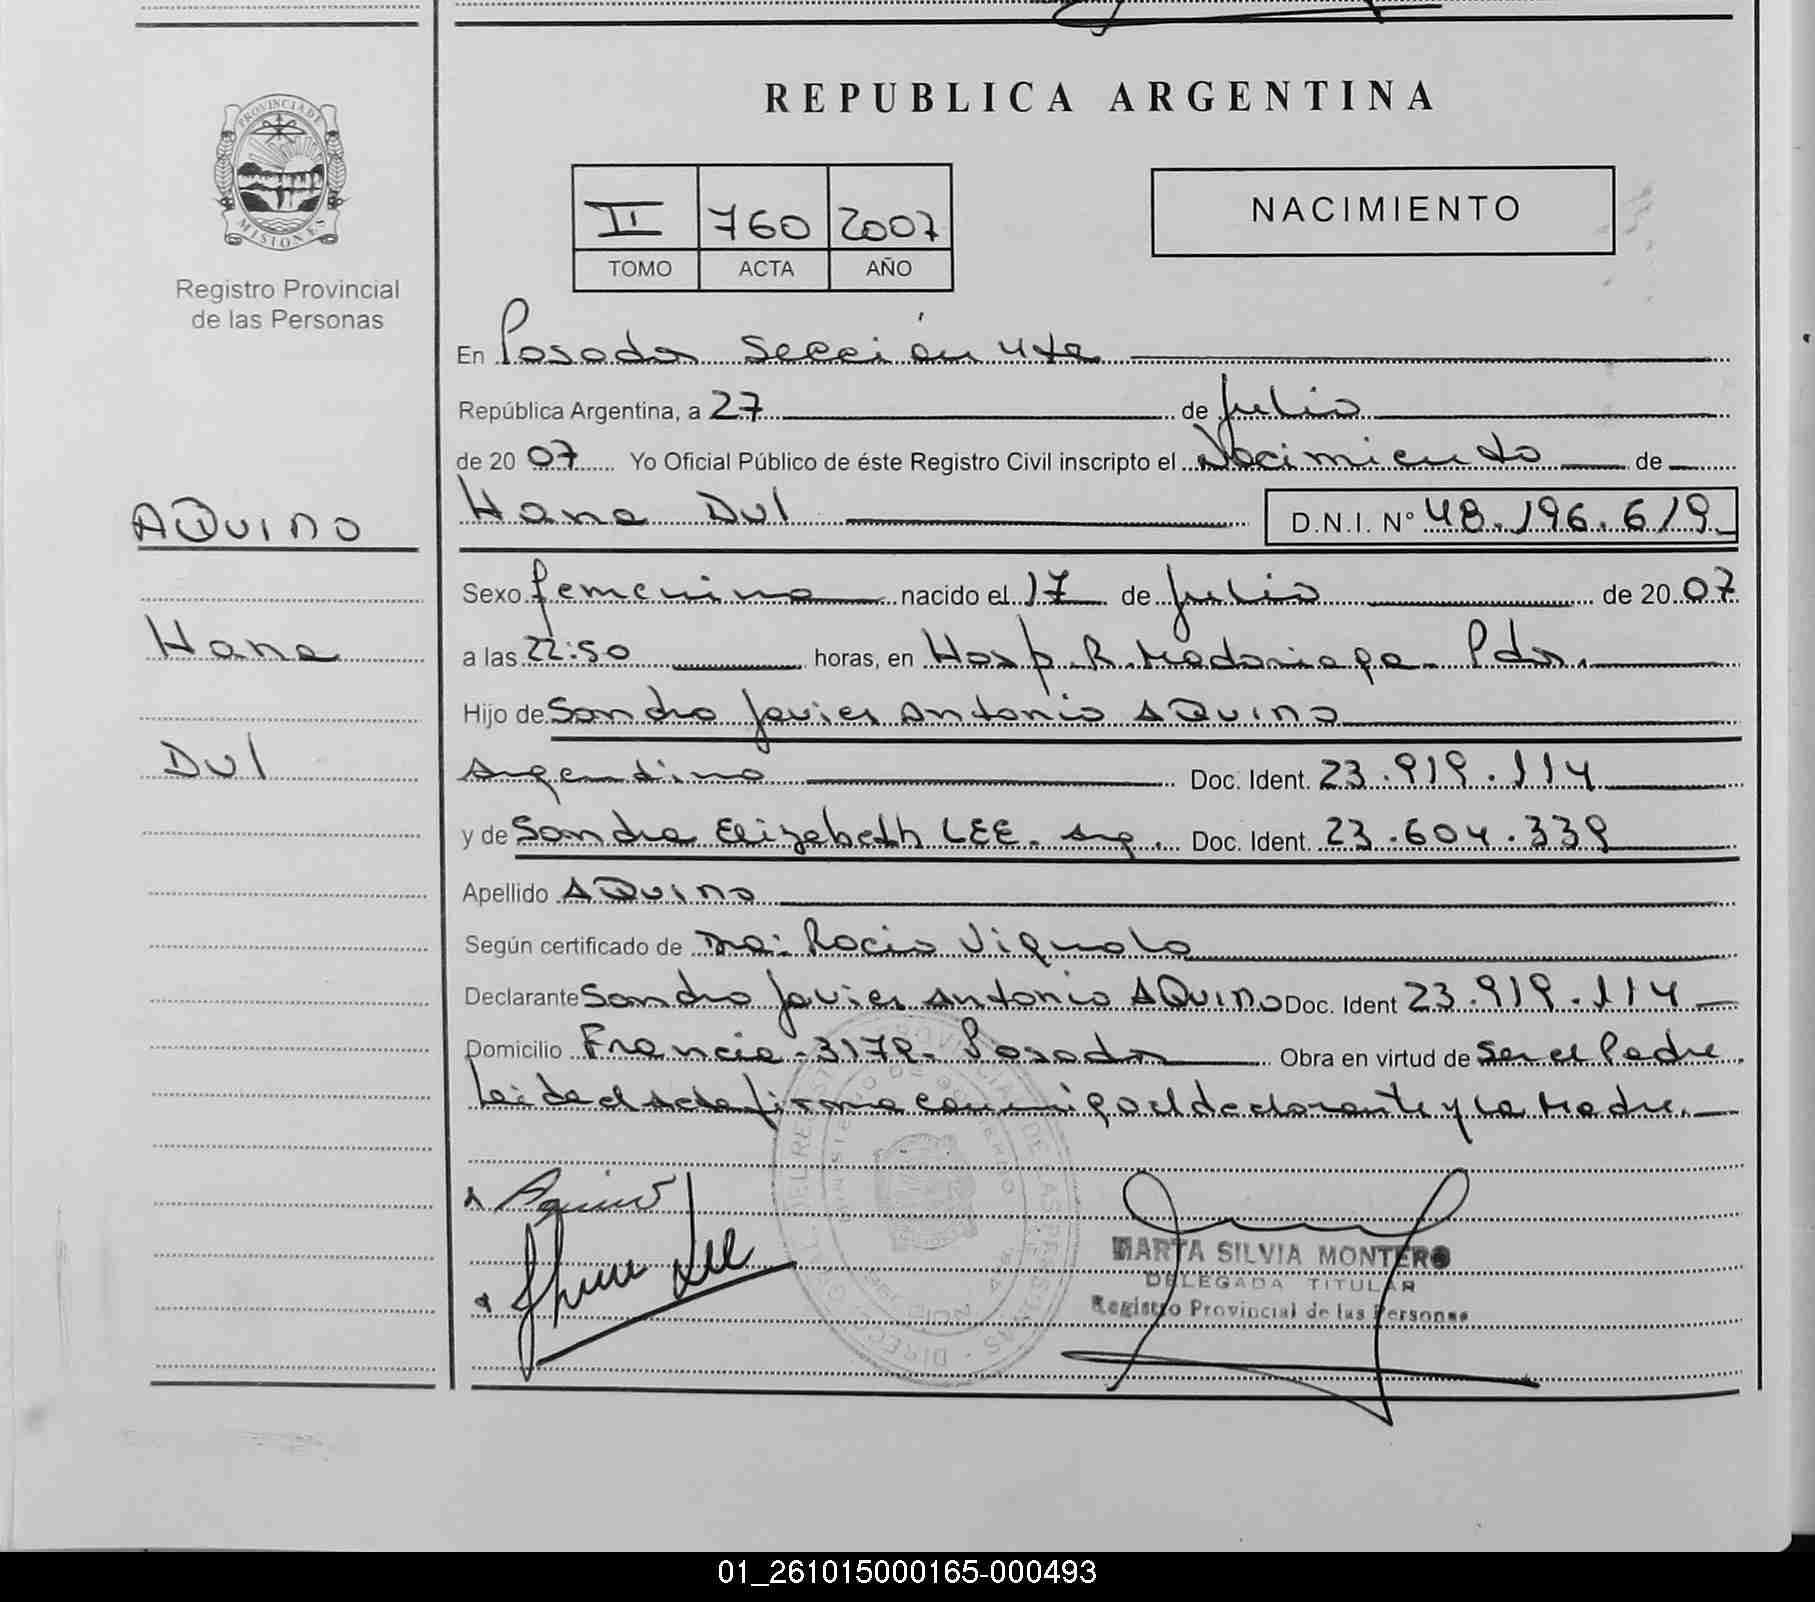 PROVINCIA DE
MISIONES
Registro Provincial
de las Personas
REPUBLICA ARGENTINA
II 760 2007
TOMO ACTA AÑO
NACIMIENTO
En Posadas Sección 4ta
República Argentina, a 27 de Julio
de 2007 Yo Oficial Público de éste Registro Civil inscripto el Nacimiento de
AQUINO
Hana Dul D.N.I. N° 48.196.619
Sexo femenino nacido el 17 de Julio de 2007
Hana
a las 22:50 horas, en Hosp. R. Madariaga. Pdas.
Hijo de Sandro Javier Antonio AQUINO
Dul
Argentino Doc. Ident. 23.919.114
y de Sandra Elizabeth LEE. Arg. Doc. Ident. 23.604.339
Apellido AQUINO
Según certificado de Dra: Rocio Vignolo
Declarante Sandro Javier Antonio AQUINO Doc. Ident 23.919.114
Domicilio Francia 3179. Posadas Obra en virtud de ser el Padre
Leida el Acta firma conmigo el declarante y la Madre.
Aquino
Lee
MARTA SILVIA MONTERO
DELEGADA TITULAR
Registro Provincial de las Personas
01_261015000165-000493